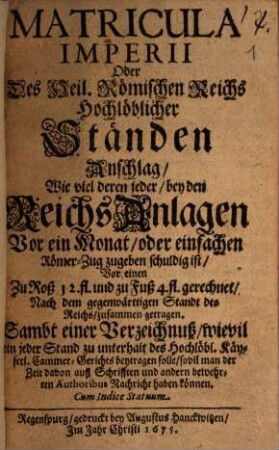 MATRICULA
IMPERII
Oder
Des Heil. Römischen Reichs
Hochlöblicher
Ständen
Anschlag/
Wie viel deren jeder/ bey den
Reichs Anlagen
Vor ein Monat/ oder einfachen
Römer-Zug zugeben schuldig ist/
Vor einen
Zu Roß 12. fl. und zu Fuß 4. fl. gerechnet/
Nach dem gegenwärttigen Standt des
Reichs/ zusammen getragen.
Sambt einer Verzeichnuß/ wievil
ein jeder Stand zu unterhalt des Hochlöbl. Käy-
serl. Cammer-Gerichts beytragen solle/ sovil man der
Zeit davon auß Schrifften und andern bewehr-
ten Authoribus Nachricht haben können.
Cum Indice Statuum.
Regenspurg/ gedruckt bey Augustus Hanckwitzen/
Im Jahr Christi 1675.